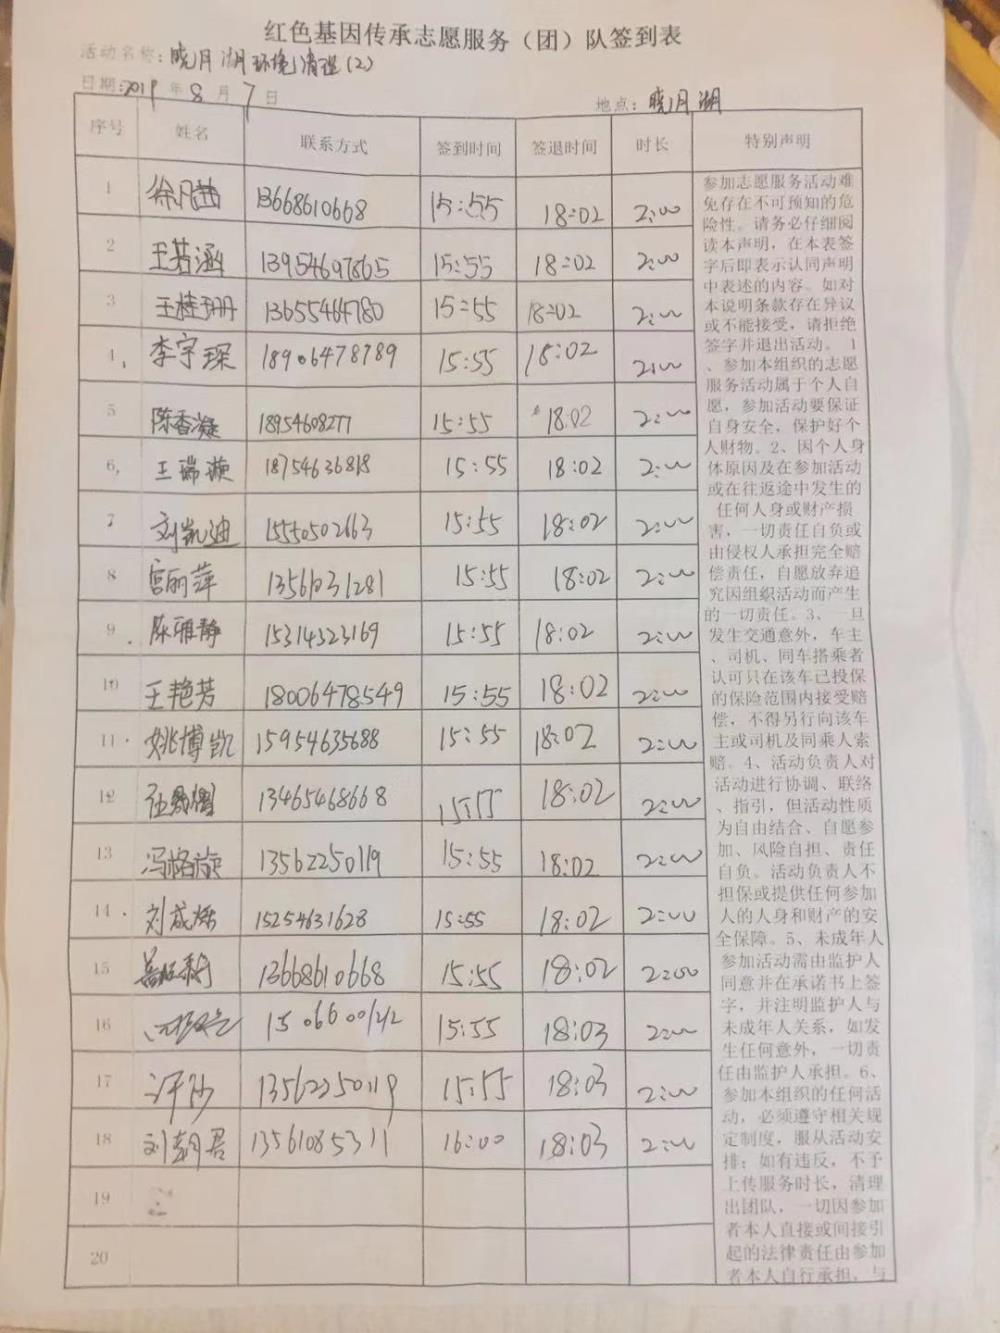 红色基因传承志愿服务（团）队签到表
活动名称：晓月湖环境清理(2)
日期：2019年8月7日
地点：晓月湖
序号 姓名 联系方式 签到时间 签退时间 时长 特别声明
1 徐凡茜 13668610668 15:55 18:02 2:00
2 王若涵 13954697865 15:55 18:02 2:00
3 王桂珊 13655464780 15:55 18:02 2:00
4 李宇琛 18906478789 15:55 18:02 2:00
5 陈香凝 18954608277 15:55 18:02 2:00
6 王瑞漩 18754636818 15:55 18:02 2:00
7 刘凯迪 15550502663 15:55 18:02 2:00
8 宫丽萍 13561031281 15:55 18:02 2:00
9 陈雅静 15314323169 15:55 18:02 2:00
10 王艳芳 18006478549 15:55 18:02 2:00
11 姚博凯 15954635688 15:55 18:02 2:00
12 13465468668 15:55 18:02 2:00
13 冯格旋 13562250119 15:55 18:02 2:00
14 刘成 15254631628 15:55 18:02 2:00
15 13668610668 15:55 18:02 2:00
16 15:55 18:03 2:00
17 13562250119 15:55 18:03 2:00
18 刘朝君 13561085311 16:00 18:03 2:00
19
20
参加志愿服务活动难
免存在不可预知的危
险性。请务必仔细阅
读本声明，在本表签
字后即表示认同声明
中表述的内容。如对
本说明条款存在异议
或不能接受，请拒绝
签字并退出活动。 1
、参加本组织的志愿
服务活动属于个人自
愿，参加活动要保证
自身安全，保护好个
人财物。2、因个人身
体原因及在参加活动
或在往返途中发生的
任何人身或财产损
害，一切责任自负或
由侵权人承担完全赔
偿责任，自愿放弃追
究因组织活动而产生
的一切责任。3、一旦
发生交通意外，车主
、司机、同车搭乘者
认可只在该车已投保
的保险范围内接受赔
偿，不得另行向该车
主或司机及同乘人索
赔。4、活动负责人对
活动进行协调、联络
、指引，但活动性质
为自由结合、自愿参
加、风险自担、责任
自负。活动负责人不
担保或提供任何参加
人的人身和财产的安
全保障。5、未成年人
参加活动需由监护人
同意并在承诺书上签
字，并注明监护人与
未成年人关系，如发
生任何意外，一切责
任由监护人承担。6、
参加本组织的任何活
动，必须遵守相关规
定制度，服从活动安
排；如有违反，不予
上传服务时长，清理
出团队，一切因参加
者本人直接或间接引
起的法律责任由参加
者本人自行承担，与